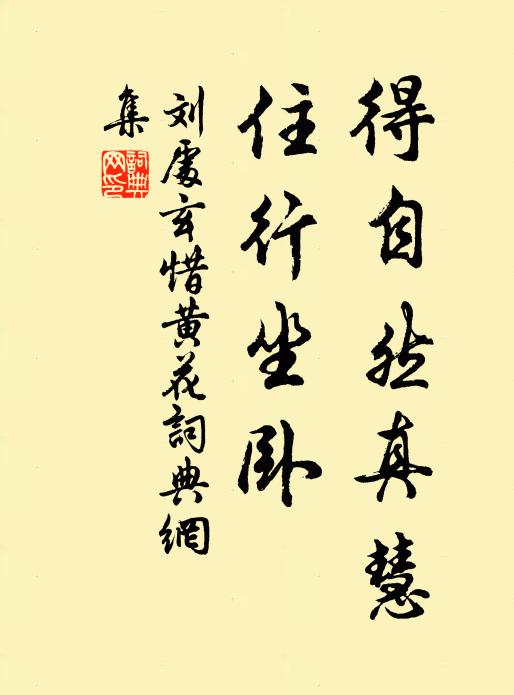 得自然真慧
住行坐卧
刘處玄惜黄花詞典網
集
詞典網印